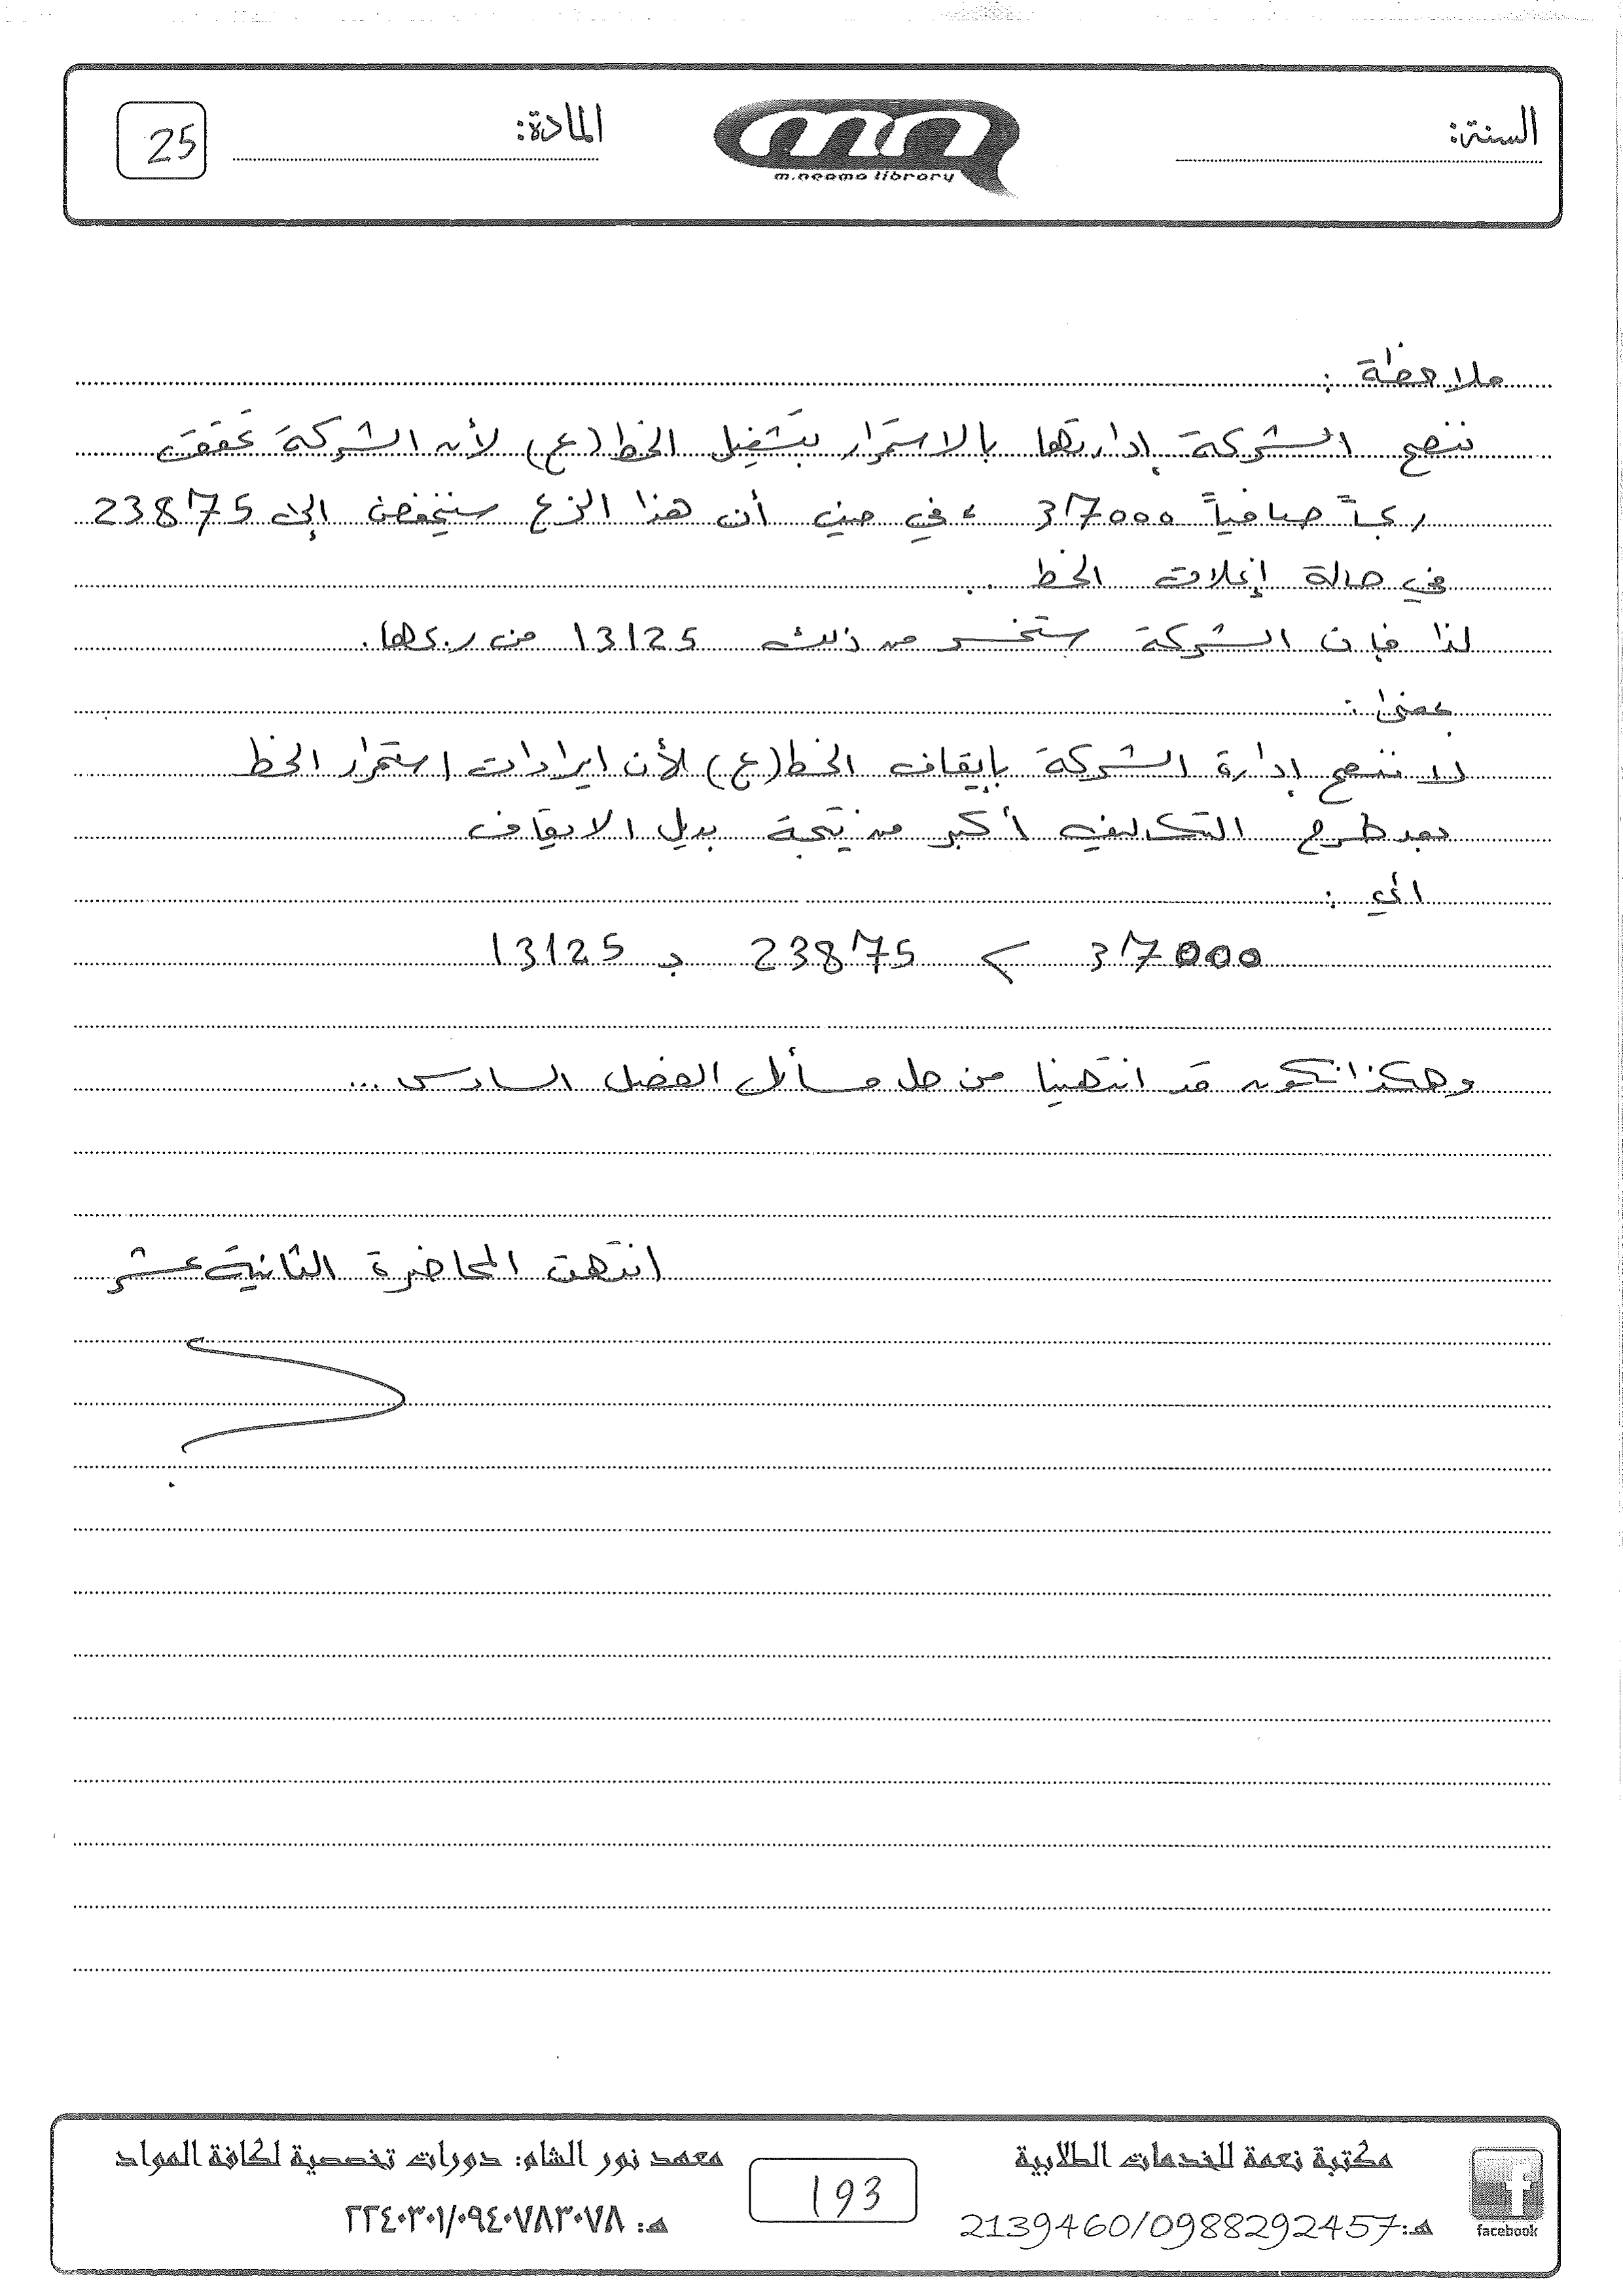 السنة:
m.neama library
المادة:
25
ملاحظة :
ننصح الشركة إدارتها بالاستمرار بتشغيل الخط (ع) لأن الشركة تحقق
ربحاً صافياً 37000 ، في حين أن هذا الربح سينخفض إلى 23875
في حالة إغلاق الخط .
لذا فإن الشركة ستخسر من ذلك 13125 من ربحها.
بمعنى :
لا ننصح إدارة الشركة بإيقاف الخط (ع) لأن ايرادات استمرار الخط
بعد طرح التكاليف أكبر من نتيجة بديل الايقاف
أي :
37000 > 23875 بـ 13125
وهكذا نكون قد انتهينا من حل مسائل الفصل السادس ...
انتهت المحاضرة الثانية عشر
facebook
مكتبة نعمة للخدمات الطلابية
هـ: 2139460/0988292457
193
معهد نور الشام: دورات تخصصية لكافة المواد
هـ: ٢٢٤٠٣٠١/٠٩٤٠٧٨٣٠٧٨